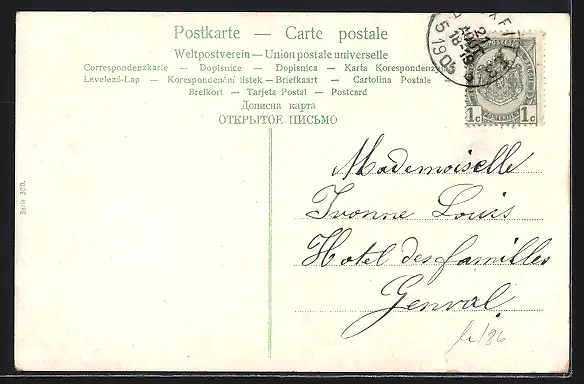 Postkarte — Carte postale
Weltpostverein — Union postale universelle
Correspondenzkarte — Dopisnice — Dopisnica — Karta Korespondenzyjna
Levelező-Lap — Korespondenční listek — Briefkaart — Cartolina Postale
Brefkort — Tarjeta Postal — Postcard
Дописна карта
ОТКРЫТОЕ ПИСЬМО
1c 1c
Mademoiselle
Yvonne Louis
Hotel des familles
Genval.
Serie 300.